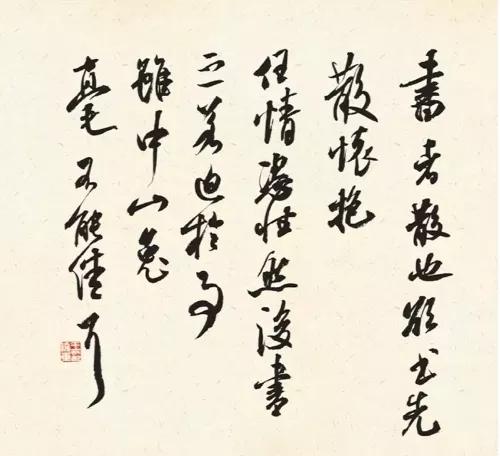 書者散也欲书先
散懷抱
任情恣性然後書
之若迫於事
雖中山兔
毫不能佳耳